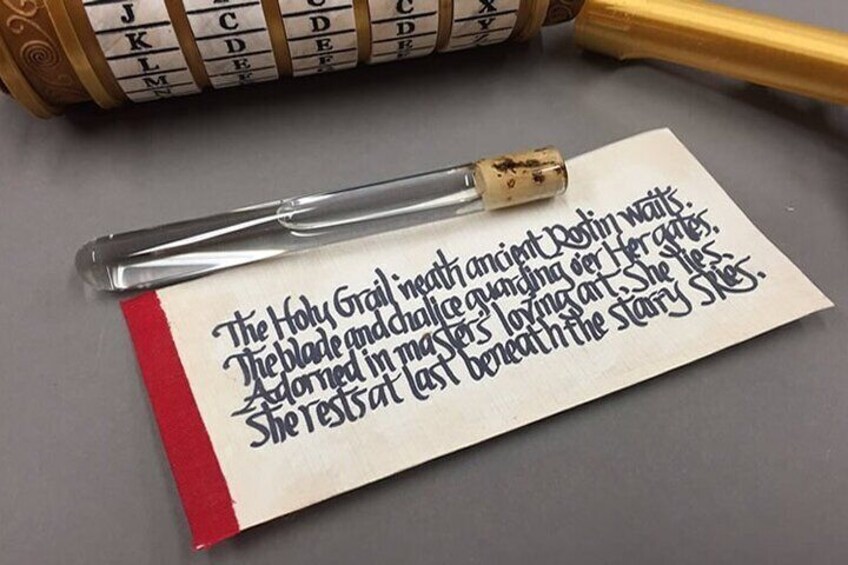 J
K
L
M
N
C
D
E
C
D
E
F
C
D
E
X
Y
Z
The Holy Grail 'neath ancient Roslin waits.
The blade and chalice guarding o'er Her gates.
Adorned in masters' loving art, She lies.
She rests at last beneath the starry skies.